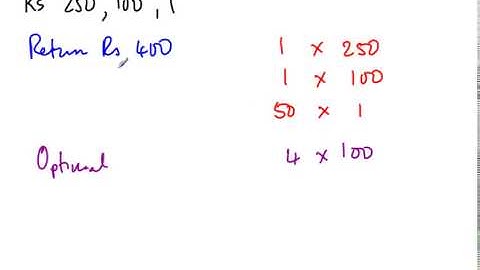 Rs 250, 100, 1
Return Rs 400
1 x 250
1 x 100
50 x 1
Optimal
4 x 100